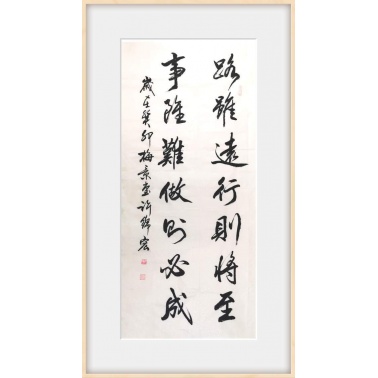 路雖遠行則将至
事雖難做則必成
歲在癸卯梅景堂許鎔宏